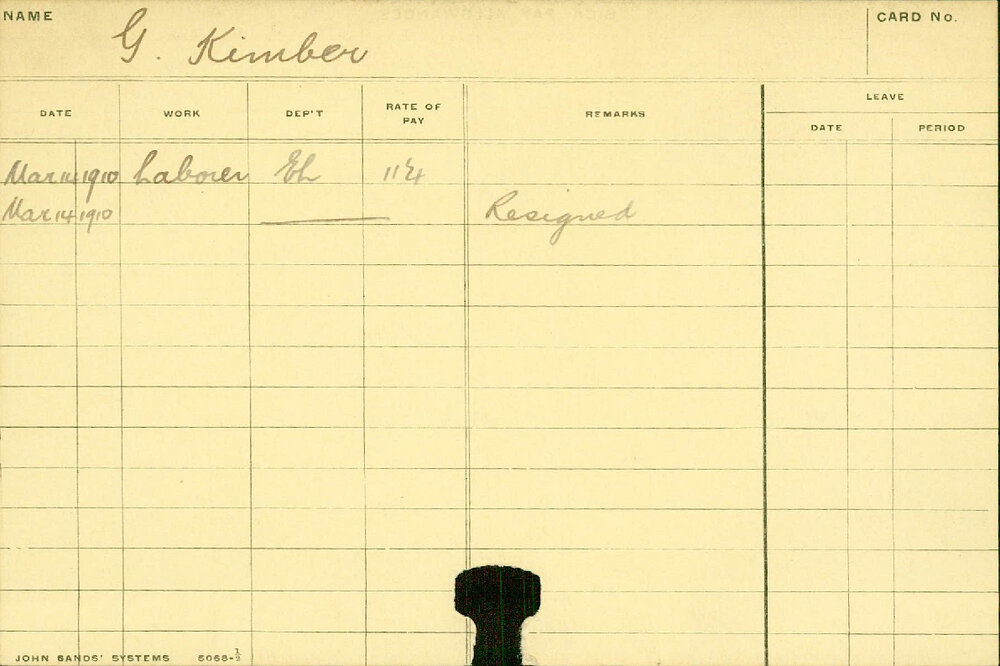 NAME G. Kimber CARD No.
DATE WORK DEP'T RATE OF PAY REMARKS LEAVE
DATE PERIOD
Mar 14 1910 Laborer Eh
Mar 14 1910 Resigned
JOHN SANDS' SYSTEMS 5068-½